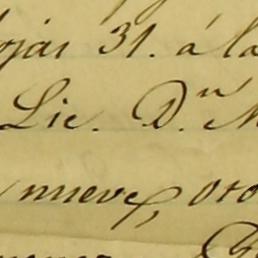 ojas 31. á la
Lic. Dn. M
nueve, oto